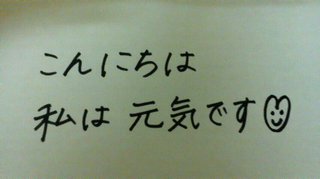 こんにちは
私は 元気です